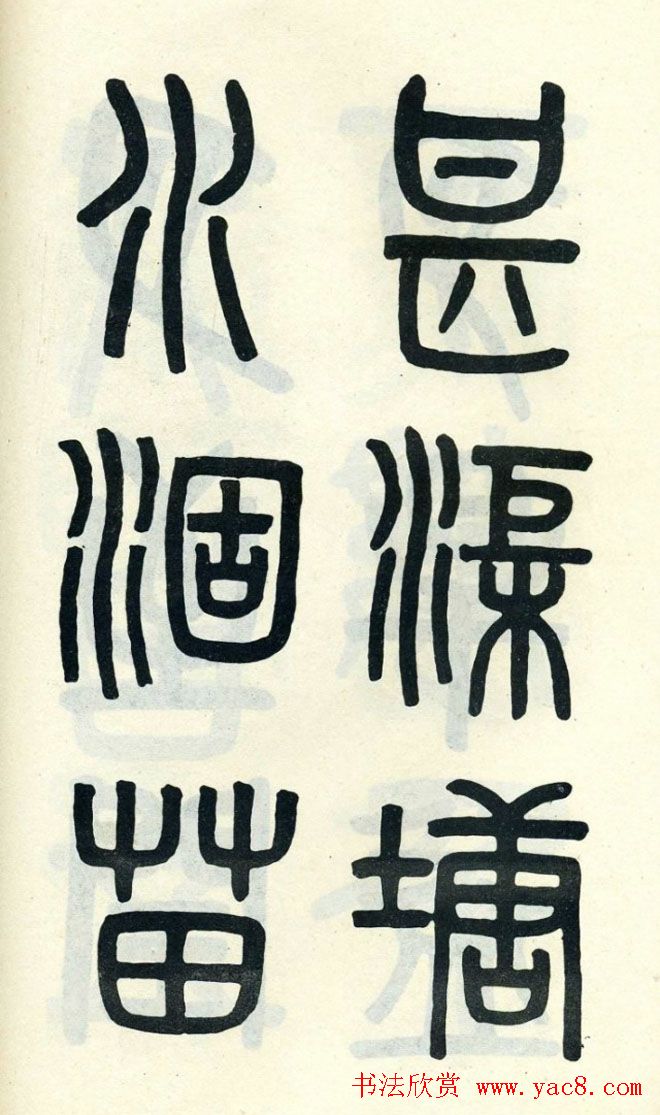 甚渠塘
水涸苗
书法欣赏 www.yac8.com